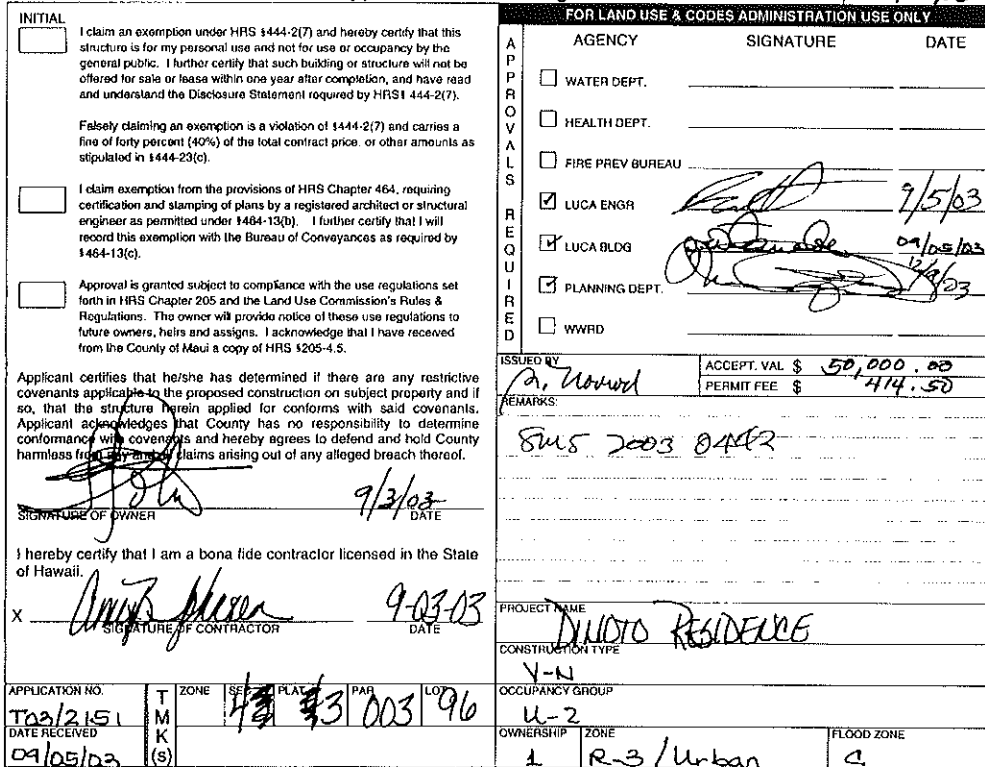 INITIAL
I claim an exemption under HRS §444-2(7) and hereby certify that this
structure is for my personal use and not for use or occupancy by the
general public. I further certify that such building or structure will not be
offered for sale or lease within one year after completion, and have read
and understand the Disclosure Statement required by HRS§ 444-2(7).
Falsely claiming an exemption is a violation of §444-2(7) and carries a
fine of forty percent (40%) of the total contract price, or other amounts as
stipulated in §444-23(c).
I claim exemption from the provisions of HRS Chapter 464, requiring
certification and stamping of plans by a registered architect or structural
engineer as permitted under §464-13(b). I further certify that I will
record this exemption with the Bureau of Conveyances as required by
§464-13(c).
Approval is granted subject to compliance with the use regulations set
forth in HRS Chapter 205 and the Land Use Commission's Rules &
Regulations. The owner will provide notice of these use regulations to
future owners, heirs and assigns. I acknowledge that I have received
from the County of Maui a copy of HRS §205-4.5.
Applicant certifies that he/she has determined if there are any restrictive
covenants applicable to the proposed construction on subject property and if
so, that the structure herein applied for conforms with said covenants.
Applicant acknowledges that County has no responsibility to determine
conformance with covenants and hereby agrees to defend and hold County
harmless from any and all claims arising out of any alleged breach thereof.
9/3/03
SIGNATURE OF OWNER DATE
I hereby certify that I am a bona fide contractor licensed in the State
of Hawaii.
X 9-03-03
SIGNATURE OF CONTRACTOR DATE
FOR LAND USE & CODES ADMINISTRATION USE ONLY
APPROVALS REQUIRED
AGENCY SIGNATURE DATE
WATER DEPT.
HEALTH DEPT.
FIRE PREV BUREAU
LUCA ENGR 9/5/03
LUCA BLDG 09/05/03
PLANNING DEPT. 12/9/03
WWRD
ISSUED BY
ACCEPT. VAL $ 50,000.00
PERMIT FEE $ 414.50
REMARKS:
SM5 2003 0442
PROJECT NAME
DINOTO RESIDENCE
CONSTRUCTION TYPE
V-N
APPLICATION NO. TMK(s) ZONE SEC PLAT PAR LOT
T03/2151 4 3 003 96
DATE RECEIVED
09/05/03
OCCUPANCY GROUP
U-2
OWNERSHIP ZONE FLOOD ZONE
1 R-3/Urban C